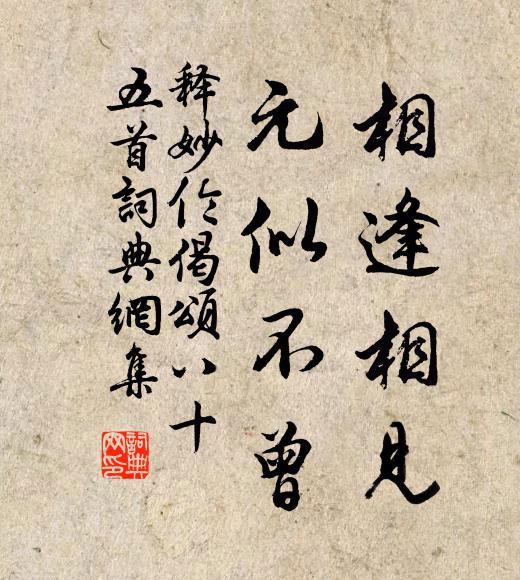 相逢相見
元似不曾
释妙伦偈頌八十
五首詞典網集
詞典
网印